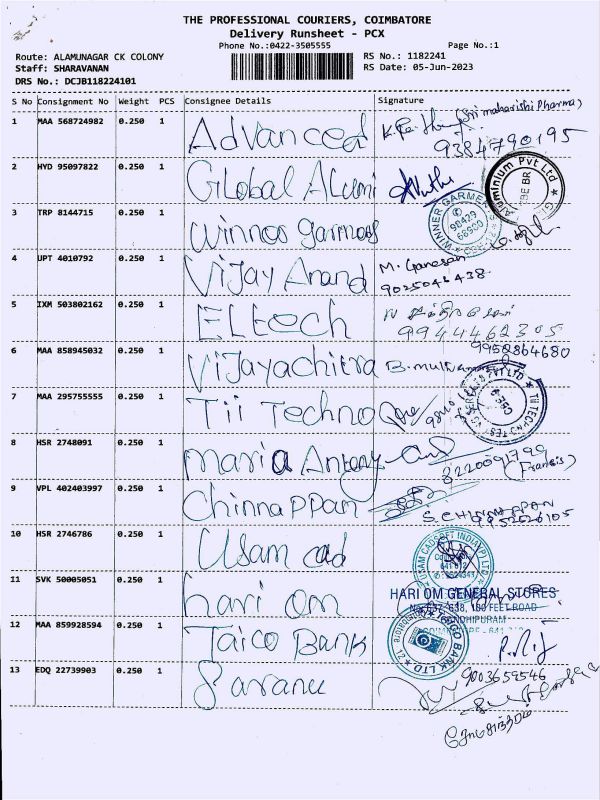 THE PROFESSIONAL COURIERS, COIMBATORE
Delivery Runsheet - PCX
Phone No.:0422-3505555 Page No.:1
Route: ALAMUNAGAR CK COLONY RS No.: 1182241
Staff: SHARAVANAN RS Date: 05-Jun-2023
DRS No.: DCJB118224101
S No Consignment No Weight PCS Consignee Details Signature
1 MAA 568724982 0.250 1 Advanced (Sri maharishi Pharma)
9384790195
2 HYD 95097822 0.250 1 Global Alumi
Aluminium Pvt Ltd
3 TRP 8144715 0.250 1 winnos garmons
WINNER GARMEN
98429
66950
4 UPT 4010792 0.250 1 Vijay Anand M. Ganesan
9025046438.
5 IXM 503802162 0.250 1 Elteoch
9944462305
6 MAA 858945032 0.250 1 Vijayachitra 9952864680
7 MAA 295755555 0.250 1 Tii Techno
8 HSR 2748091 0.250 1 maria Antony 8220091799
(Francis)
9 VPL 402403997 0.250 1 Chinnappan S. CHINNAPPAN
9952526105
10 HSR 2746786 0.250 1 Usam cad
USAM CADSOFT INDIA (P) LTD
11 SVK 50005051 0.250 1 hari om HARI OM GENERAL STORES
100 FEET ROAD
GANDHIPURAM
12 MAA 859928594 0.250 1 Taico Bank
BANK LTD
13 EDQ 22739903 0.250 1 Saranu 9003659546